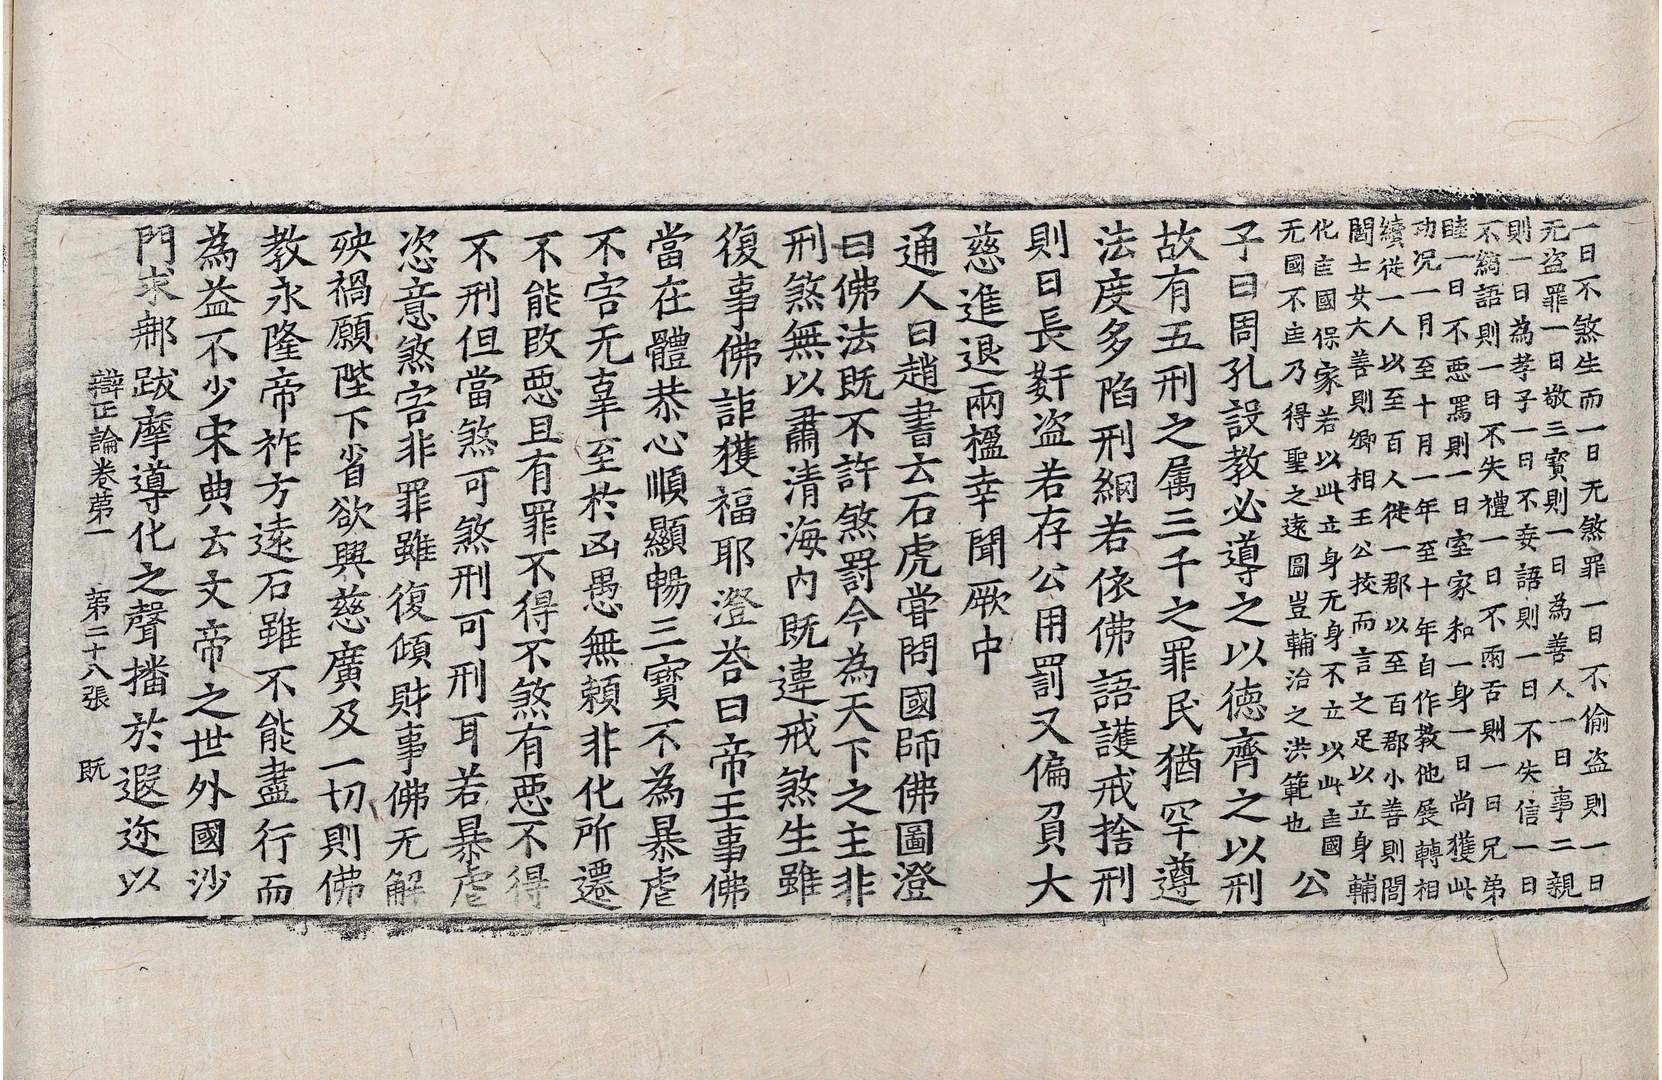 一日不煞生而一日无煞罪一日不偷盗則一日
无盗罪一日敬三寳則一日為善人一日事二親
則一日為孝子一日不妄語則一日不失信一日
不綺語則一日不失禮一日不兩舌則一日兄弟
睦一日不惡罵則一日室家和一身一日尚獲此
功况一月至十月一年至十年自作教他展轉相
續從一人以至百人從一郡以至百郡小善則閭
閻士女大善則卿相王公挍而言之足以立身輔
化㐀國保家若以此立身无身不立以此㐀國
无國不㐀乃得聖之遠圖豈輔治之洪範也
公
子曰周孔設教必導之以德齊之以刑
故有五刑之属三千之罪民猶罕遵
法度多陷刑網若依佛語護戒捨刑
則曰長姧盗若存公用罰又偏負大
慈進退兩楹幸聞厥中
通人曰趙書云石虎甞問國師佛圖澄
曰佛法既不許煞罸今為天下之主非
刑煞無以肅清海内既違戒煞生雖
復事佛詎獲福耶澄荅曰帝王事佛
當在體恭心順顯暢三寳不為暴虐
不害无辜至於凶愚無頼非化所遷
不能改惡且有罪不得不煞有惡不得
不刑但當煞可煞刑可刑耳若暴虐
恣意煞害非罪雖復傾財事佛无解
殃禍願陛下省欲興慈廣及一切則佛
教永隆帝祚方遠石雖不能盡行而
為益不少宋典云文帝之世外國沙
門求那跋摩導化之聲播於遐迩以
辯正論卷苐一 苐二十八張 既